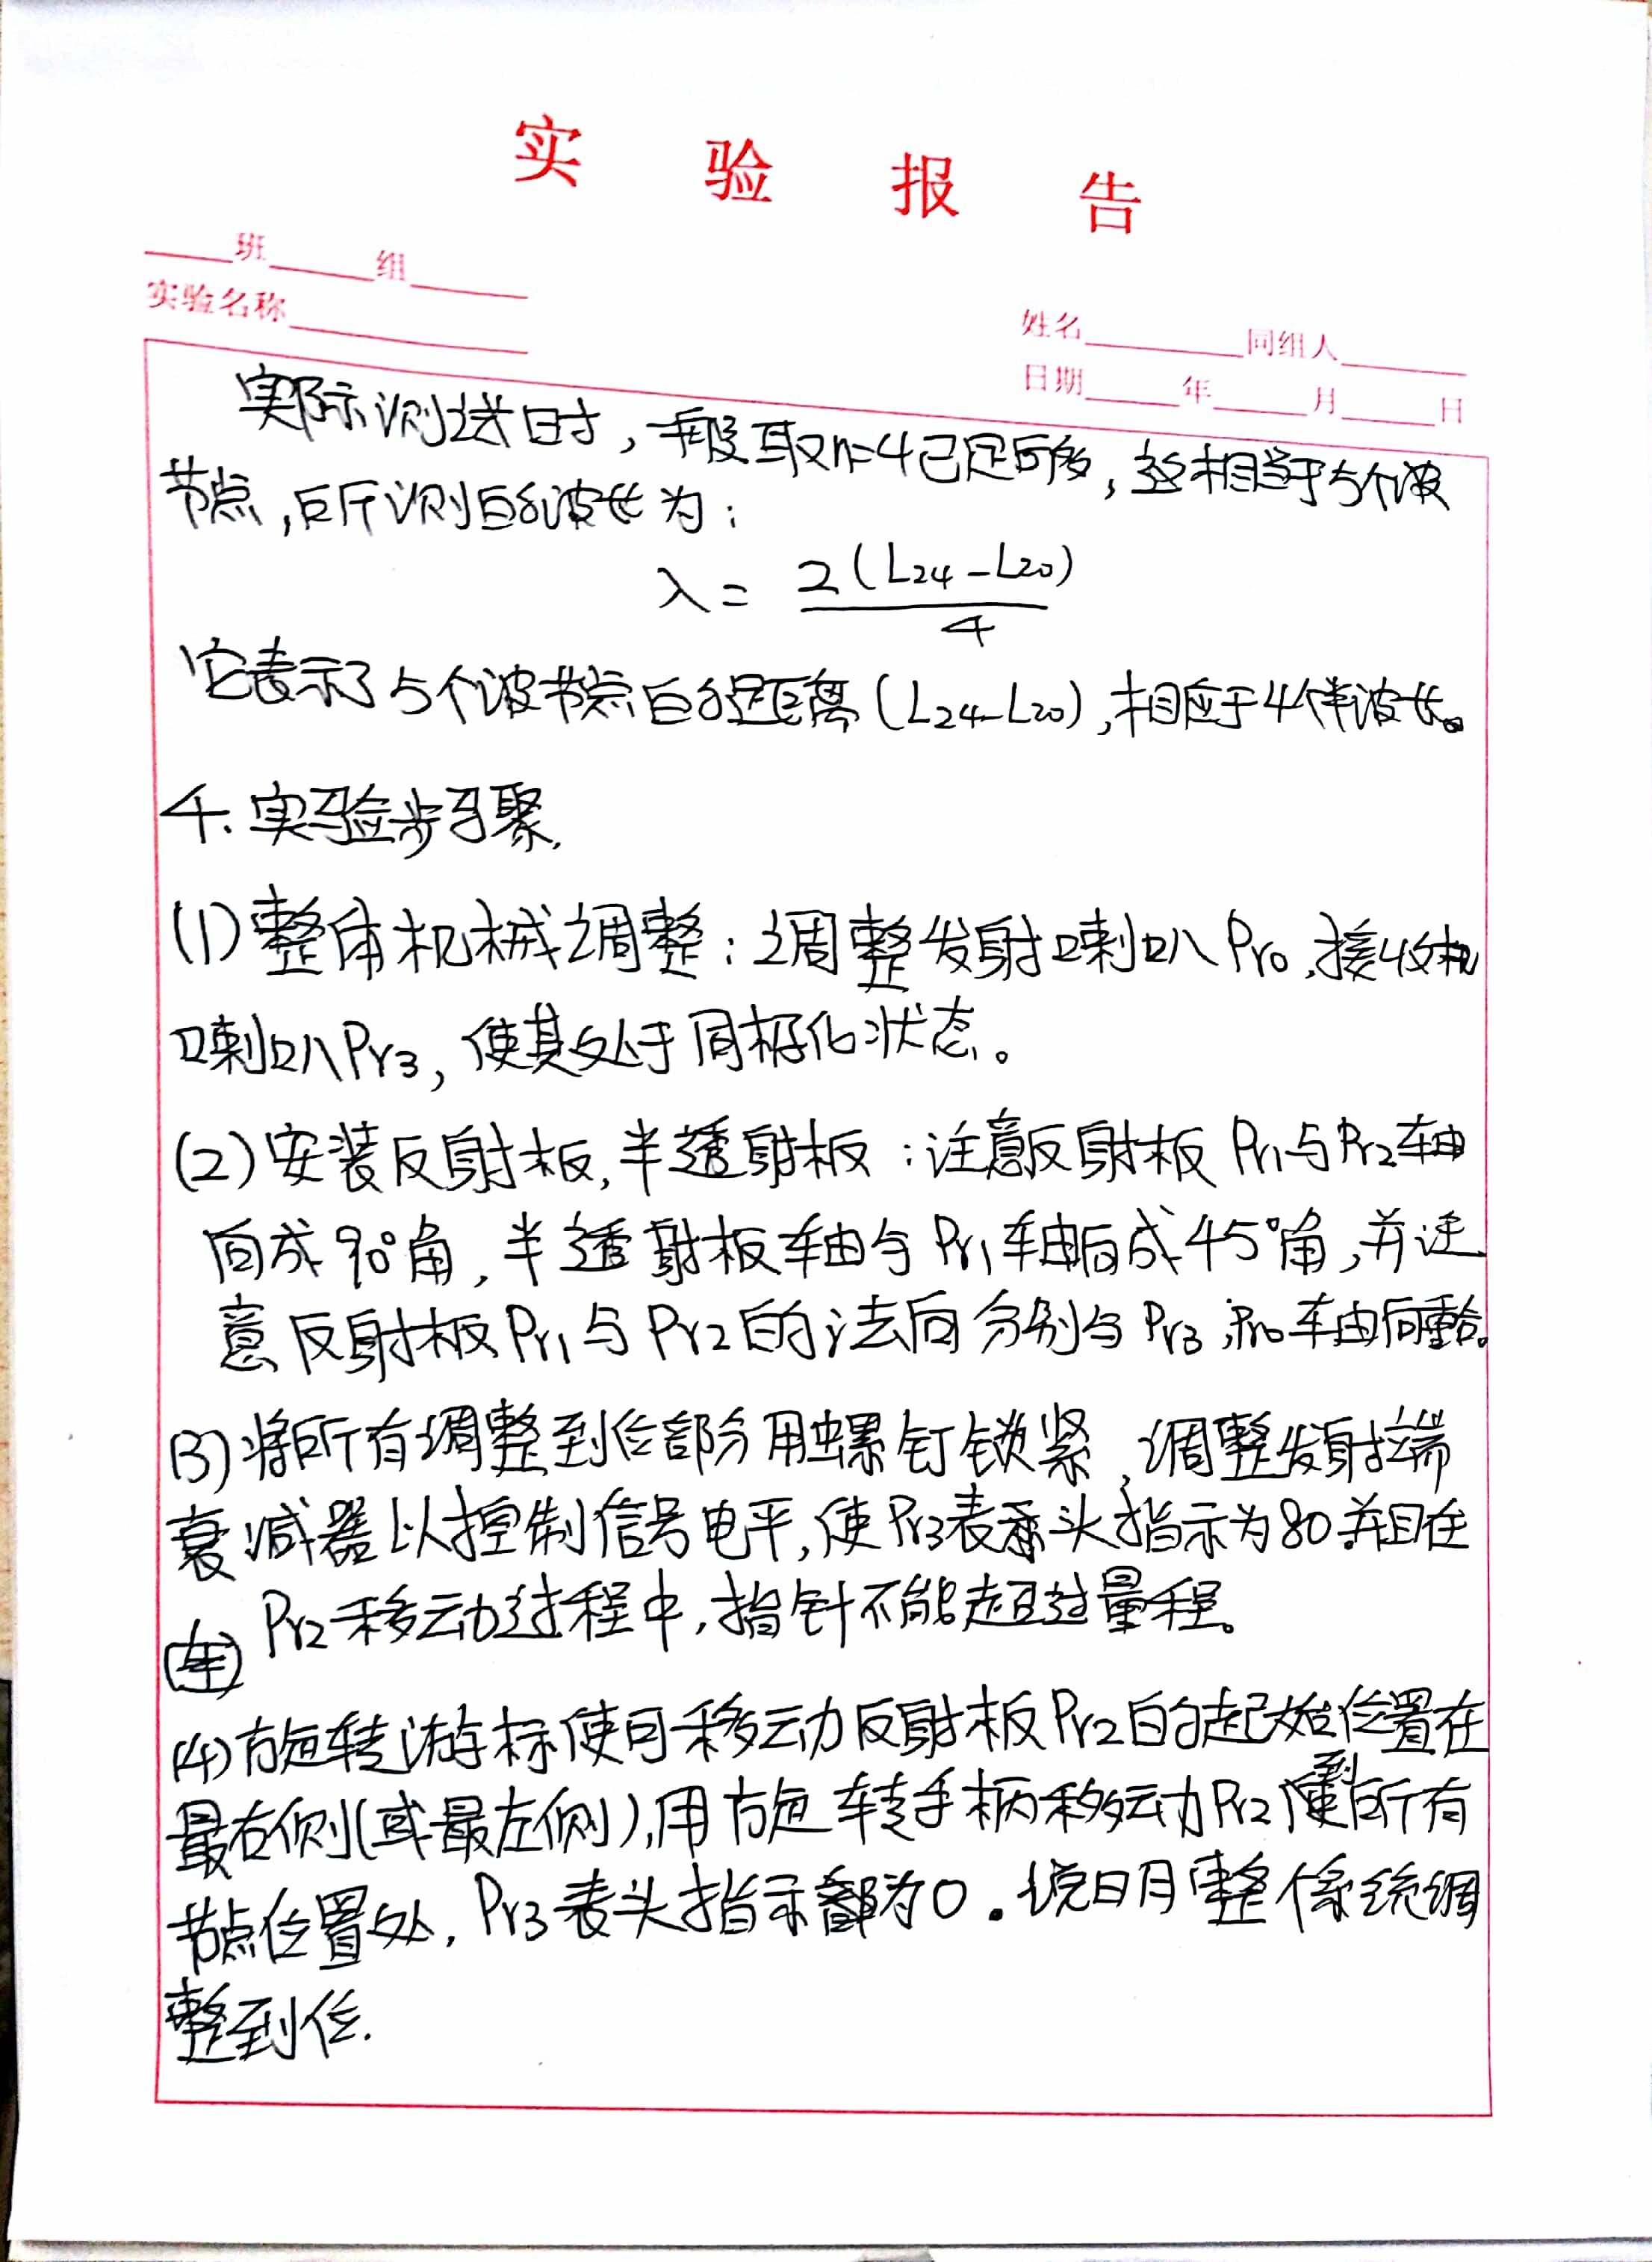 实 验 报 告
班 组
实验名称
姓名 同组人
日期 年 月 日
实际测送时，一般取n=4已足够，这相当于5个波
节点，所测的波长为：
λ = 2(L24-L20)/4
它表示了5个波节点的距离(L24-L20)，相应于4个半波长。
4.实验步骤.
(1)整体机械调整：调整发射喇叭Pr0,接收机
喇叭Pr3，使其处于同极化状态。
(2)安装反射板,半透射板：注意反射板Pr1与Pr2轴
向成90°角，半透射板轴与Pr1轴向成45°角,并注
意反射板Pr1与Pr2的法向分别与Pr3,Pr0轴向重合。
(3)将所有调整到位部分用螺钉锁紧,调整发射端
衰减器以控制信号电平,使Pr3表头指示为80.并且在
Pr2移动过程中,指针不能超过量程。
(4)旋转游标使可移动反射板Pr2的起始位置在
最右侧(或最左侧),用旋转手柄移动Pr2到所有
节点位置处,Pr3表头指示都为0。说明整个系统调
整到位.